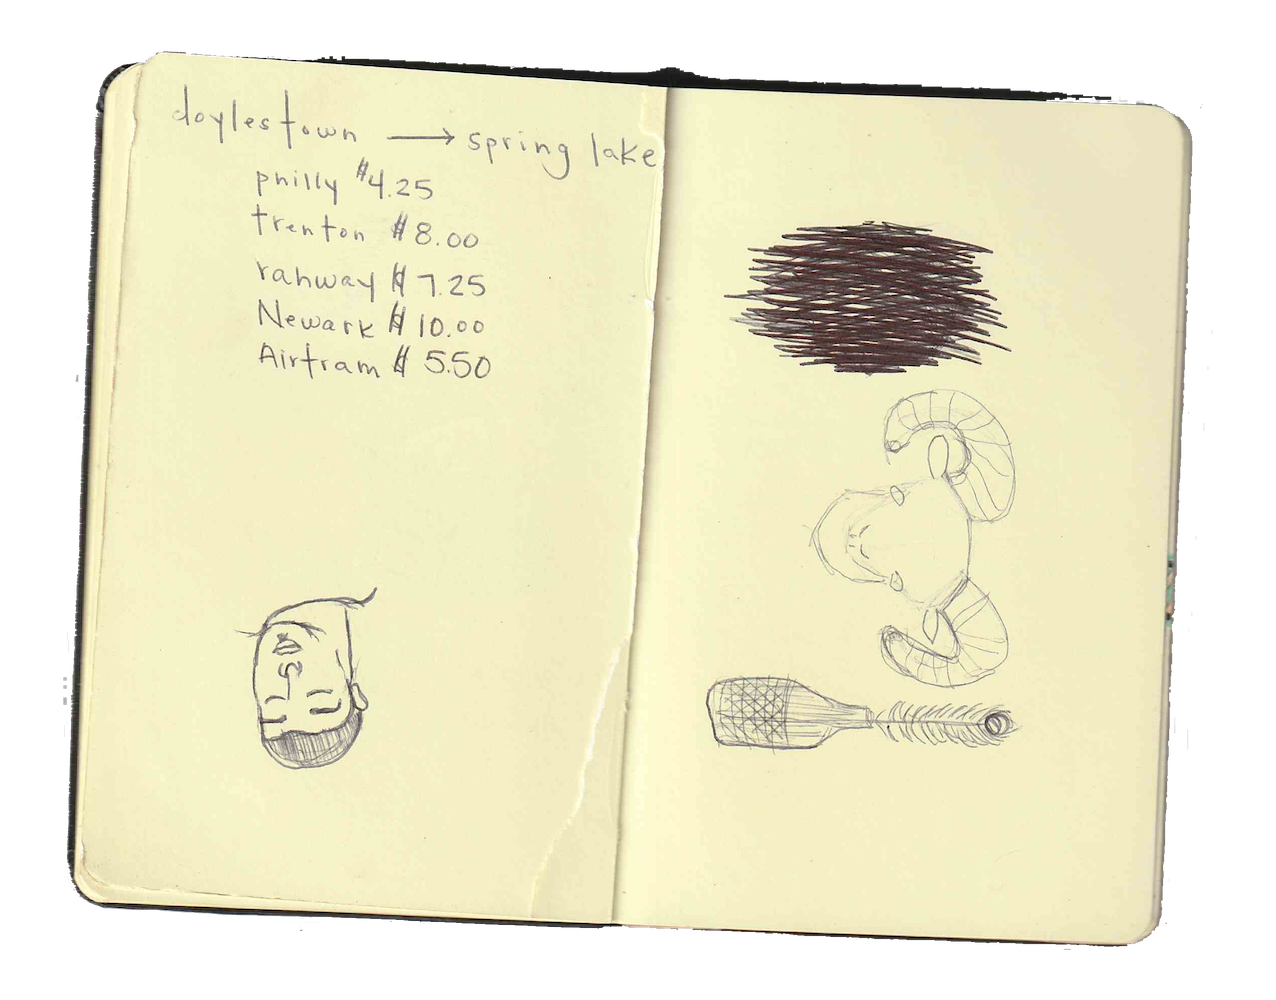 doylestown → spring lake
philly $4.25
trenton $8.00
rahway $7.25
Newark $10.00
Airtram $5.50